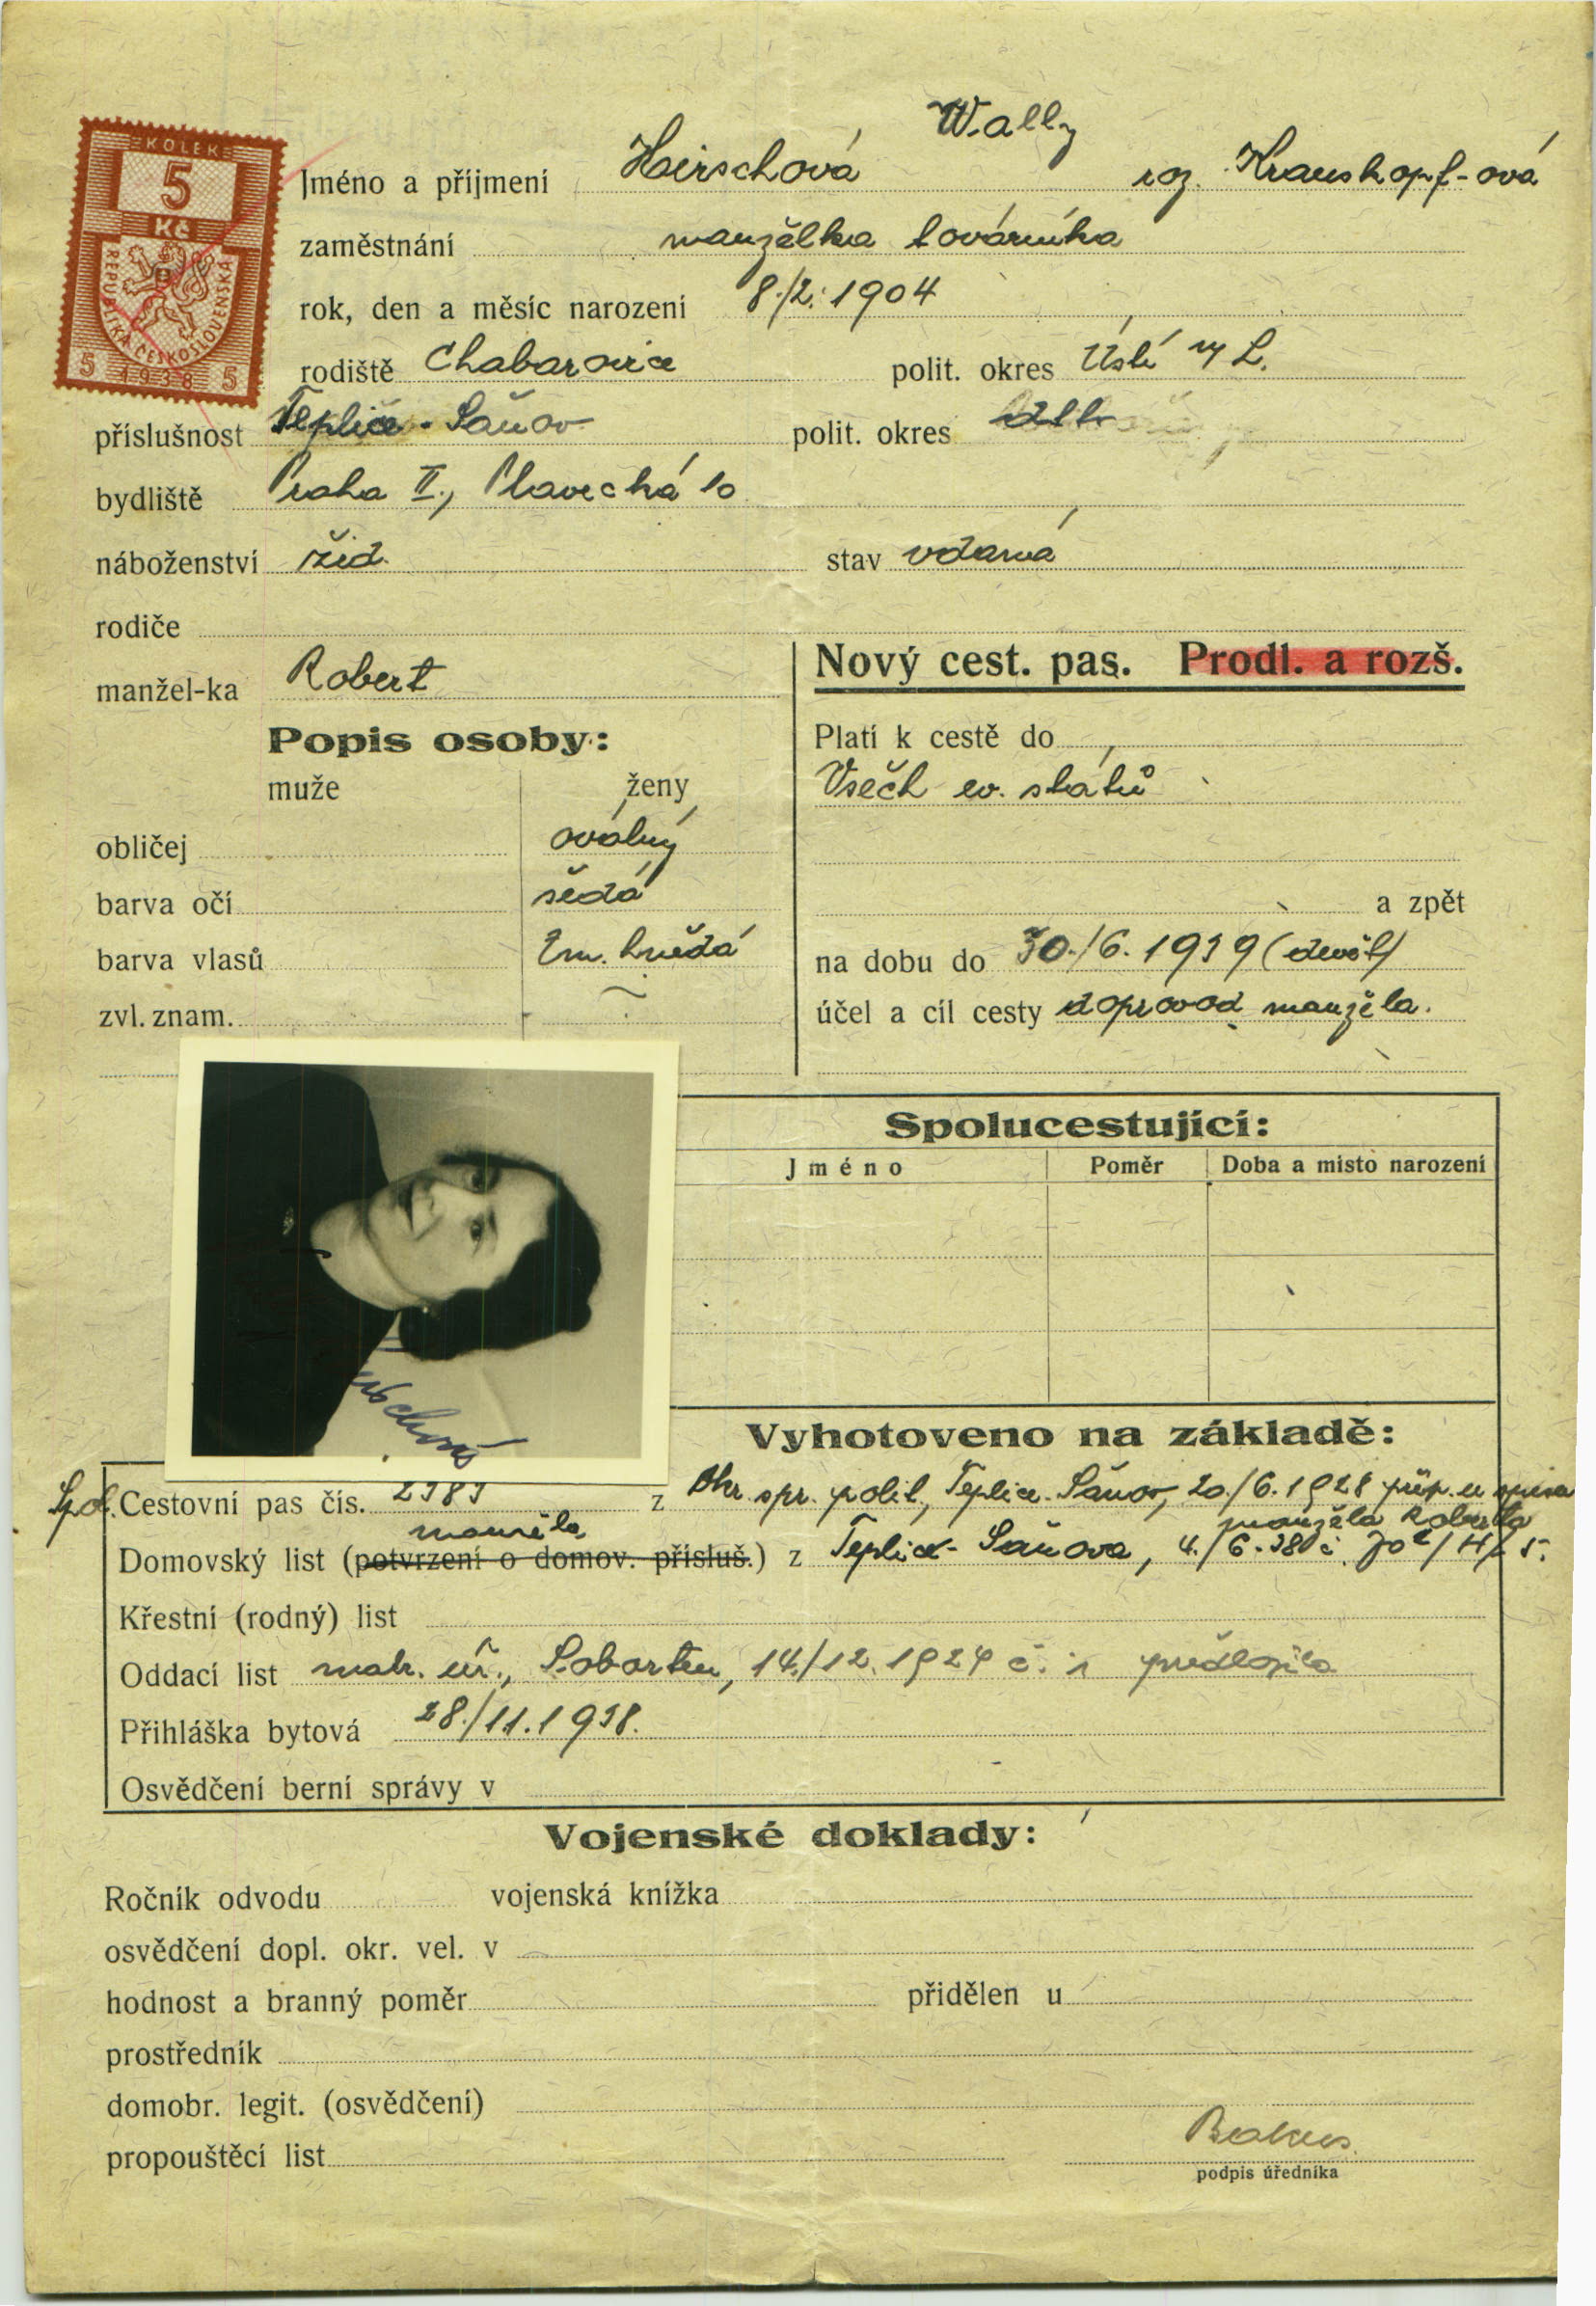 KOLEK
5
Kč
REPUBLIKA ČESKOSLOVENSKÁ
5 1938 5
Wally
Jméno a příjmení Heirschová roz. Krauskopf-ová
zaměstnání manželka továrníka
rok, den a měsíc narození 8./2. 1904
rodiště Chabarovice polit. okres Ústí n/L.
příslušnost Teplice-Šanov polit. okres dtto
bydliště Praha II., Plavecká 10
náboženství žid. stav vdaná
rodiče
manžel-ka Robert
Nový cest. pas. Prodl. a rozš.
Popis osoby:
muže ženy
obličej oválný
barva očí šedá
barva vlasů tm. hnědá
zvl. znam.
Platí k cestě do
Všech ev. států
a zpět
na dobu do 30./6. 1939 (devět)
účel a cíl cesty doprovod manžela.
Spolucestující:
Jméno Poměr Doba a místo narození
Vyhotoveno na základě:
Spol. Cestovní pas čís. 2383 z Okr. spr. polit., Teplice-Šanov, 20./6. 1928 přip. u spisu
manžela manžela Roberta
Domovský list (potvrzení o domov. přísluš.) z Teplice-Šanova, 4./6. 38
Křestní (rodný) list
Oddací list matr. úř., Soborten, 14./12. 1924 č. 1 předložila
Přihláška bytová 28./11. 1938.
Osvědčení berní správy v
Vojenské doklady:
Ročník odvodu vojenská knížka
osvědčení dopl. okr. vel. v
hodnost a branný poměr přidělen u
prostředník
domobr. legit. (osvědčení)
propouštěcí list
podpis úředníka